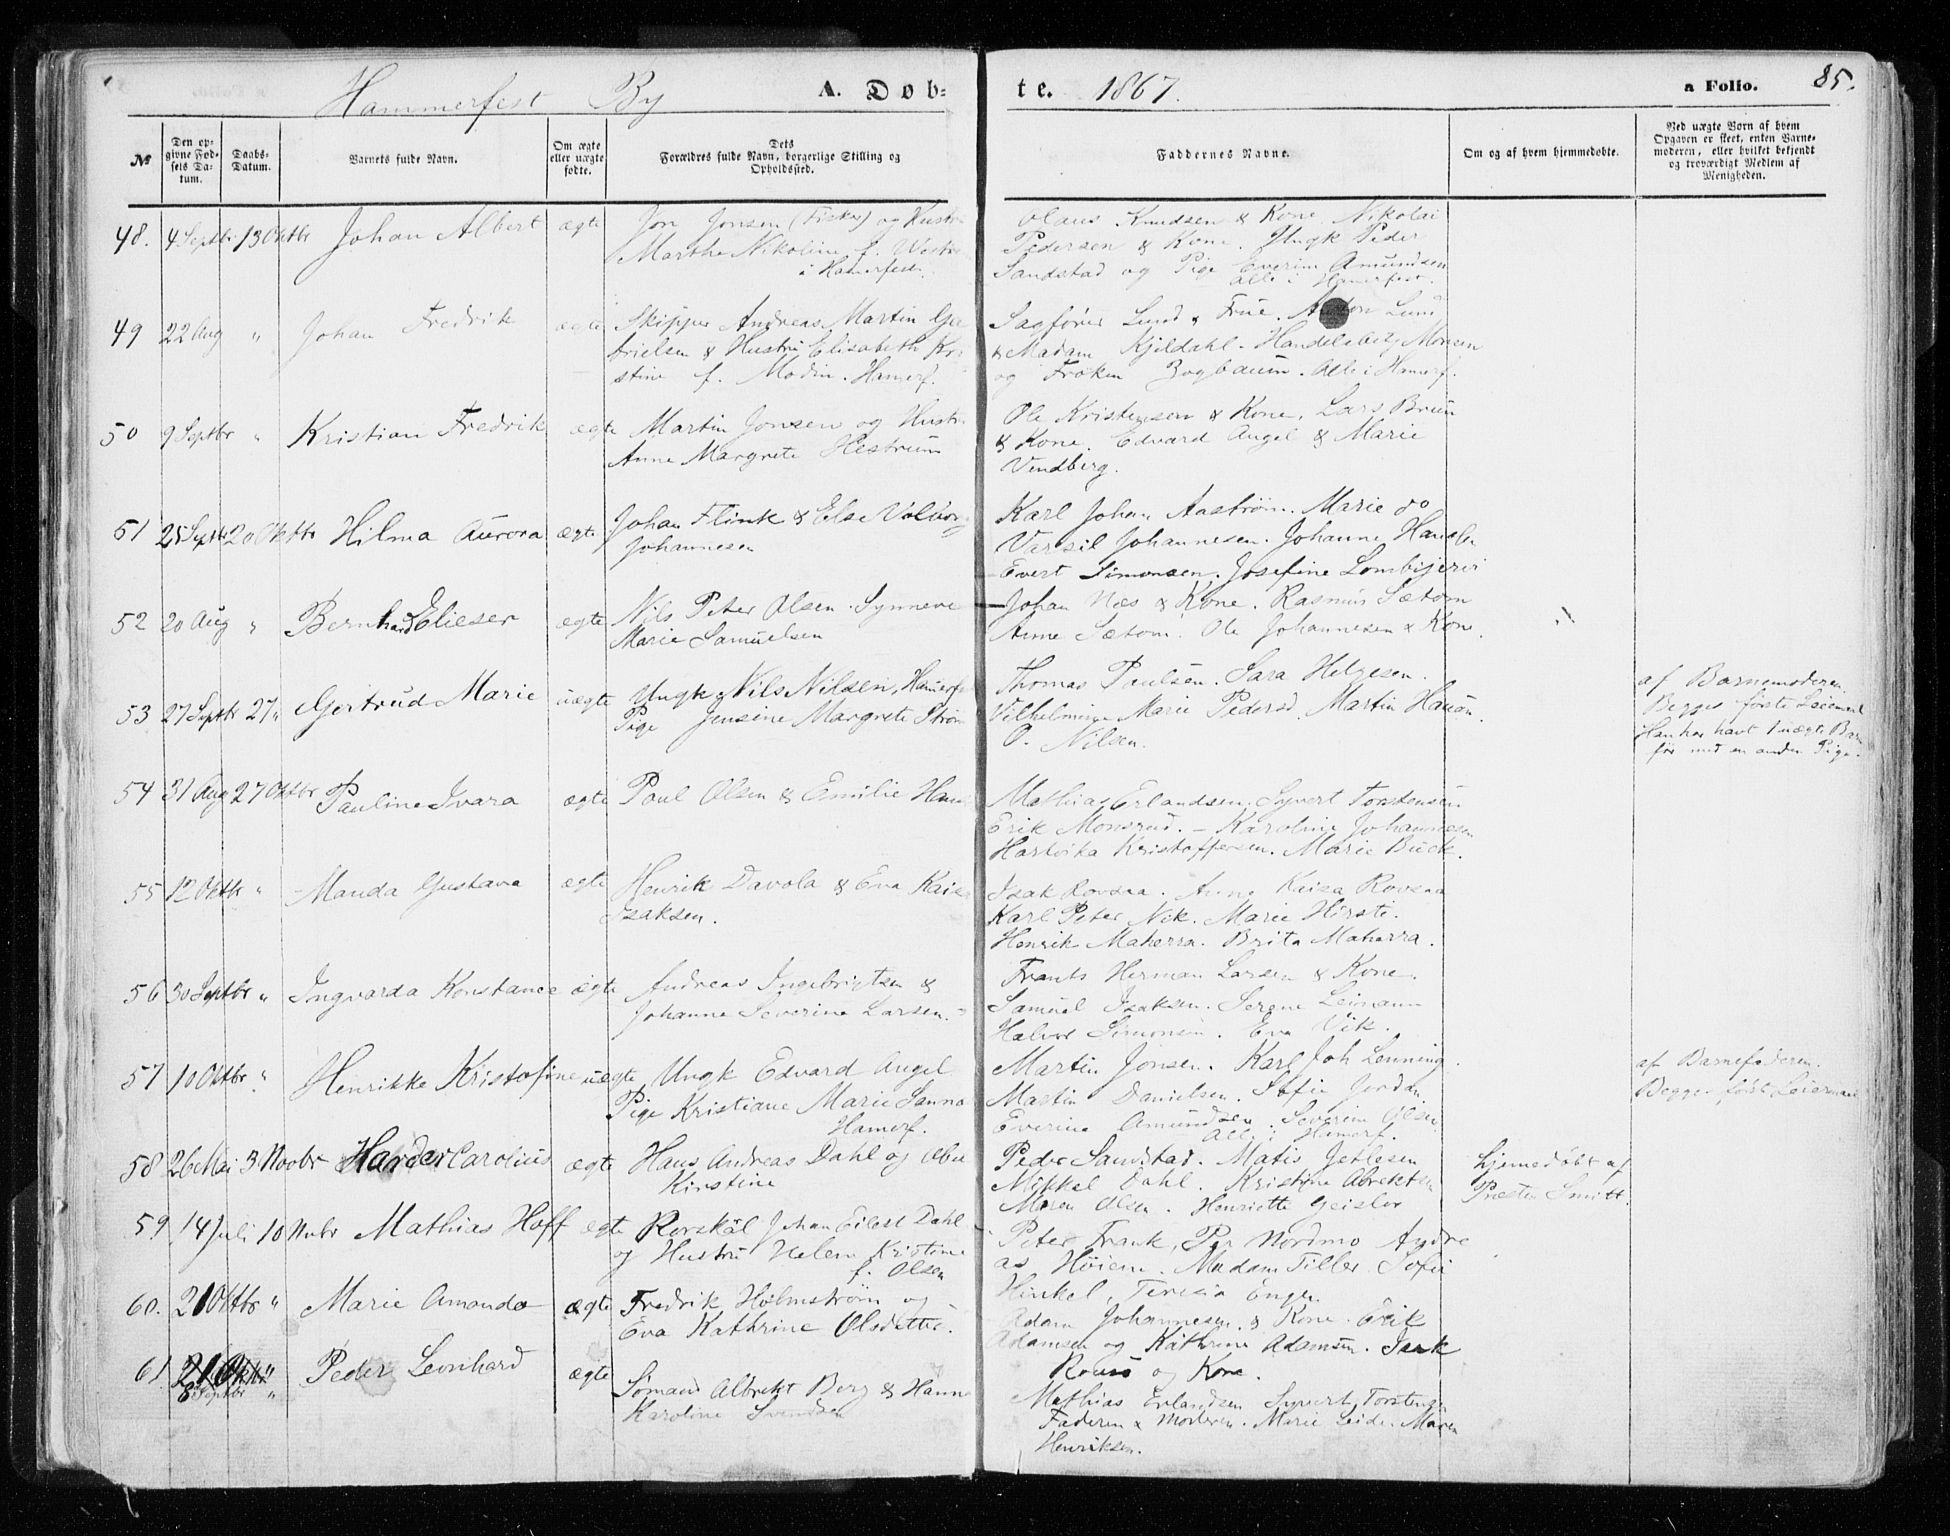 Hammerfest By A. Døb- te. 1867. a Folio. 85.
№
Den opgivne Fødsels Datum.
Daabs-Datum.
Barnets fulde Navn.
Om ægte eller uægte fødte.
Dets Forældres fulde Navn, borgerlige Stilling og Opholdssted.
Faddernes Navne.
Om og af hvem hjemmedøbte.
Ved uægte Børn af hvem Opgaven er skeet, enten Barnemoderen, eller hvilket bekjendt og troværdigt Medlem af Menigheden.
48. 4 Septbr 13 Oktbr Johan Albert ægte Jon Jonsen (Fisker) og Hustru
Marthe Nikoline f.
i Hamerfest.
Olaus Knudsen & Kone. Nikolai
Pedersen & Kone. Ungk Peder
Sandstad og Pige Everine Amundsen
Alle i Hamerfest.
49 22 Aug " Johan Fredrik ægte Skipper Andreas Martin Ga
brielsen & Hustru Elisabeth Kri
stine f. Modin. Hamerf.
Sagfører Lund & Frue. Lund
& Madam Kjeldahl. Handelsbetj Monsen
og Frøken Bogbaum. Alle i Hamerf.
50 9 Septbr " Kristian Fredrik ægte Martin Jonsen og Hustru
Anne Margrete Hestrum
Ole Kristensen & Kone. Lars Bruun
& Kone. Edvard Angel & Marie
Vindberg.
51 25 Septbr 20 Oktbr Hilma Aurora ægte Johan Flink & Else Volborg
Johannesen
Karl Johan Aastrøm. Marie do
Varsil Johannesen. Johanne
Evert Simonsen. Josefine Lombijervi
52 20 Aug " Bernhard Elieser ægte Nils Peter Olsen. Synneve
Marie Samuelsen
Johan Næs & Kone. Rasmus Sætom
Anne Sætom. Ole Johannesen & Kone.
53 27 Septbr 27 " Gjertrud Marie uægte Ungk Nils Nilsen, Hamerf
Pige Jensine Margrete Strøm
Thomas Paulsen. Sara Helgesen.
Vilhelmine Marie Pedersd. Martin
O. Nilsen.
af Barnemoderen.
Begges første Leiermaal
Han har havt 1 uægte Barn
før med en anden Pige.
54 31 Aug 27 Oktbr Pauline Ivara ægte Poul Olsen & Emilie
Mathias Erlandsen. Syvert Torstensen
Erik Monsrud. - Karoline Johannesen
Hartvika Kristoffersen. Marie Buck.
55 12 Oktbr " Manda Gustava ægte Henrik Davola & Eva Kaise
Isaksen.
Isak Rovsaa. Anna Kaisa Rovsaa
Karl Peter Nik. Marie Hirsti.
Henrik Maherra. Brita Maherra.
56 30 Septbr " Ingvarda Konstance ægte Andreas Ingebrigtsen &
Johanne Severine Larsen.
Frants Herman Larsen & Kone.
Samuel Isaksen. Serene
Halvor Simonsen. Eva Vik.
57 10 Oktbr " Henrikke Kristofine uægte Ungk Edvard Angel
Pige Kristiane Marie Sanna
Hamerf.
Martin Jonsen. Karl Joh Lenning.
Martin Danielsen. Sofie Jordan
Everine Amundsen. Severin Olsen
Alle i Hamerf.
af Barnefaderen.
Begges første Leiermaal
58 26 Mai 3 Novbr Harder Carolius ægte Hans Andreas Dahl og
Kirstine
Peder Sandstad. Matis Jetlesen
Mikkel Dahl. Kristine Abrektsen
Maren Olsen. Henriette Geisler
hjemedøbt af
Præsten Smitt.
59 14 Juli 10 Nvbr Mathias Hoff ægte Rorskal Johan Eilert Dahl
og Hustru Helene Kristine
f. Olsen
Peter Frank, Per Nordmo Andre
as Høiem. Madam Tiller. Sofie
Hinkel, Teresia Enger.
60. 21 Oktbr " Marie Amanda ægte Fredrik Holmstrøm og
Eva Kathrine Olsdatter.
Adam Johannesen & Kone. Erik
Adamsen og Kathrine Adamsen. Isak
og Kone.
61. 21 Oktbr "
8 Septbr " Peder Leonhard ægte Sømand Albrekt Berg & Hanne
Karoline Svendsen
Mathias Erlandsen Syvert Torstensen
Faderen & Moderen. Marie Maren
Henriksen.